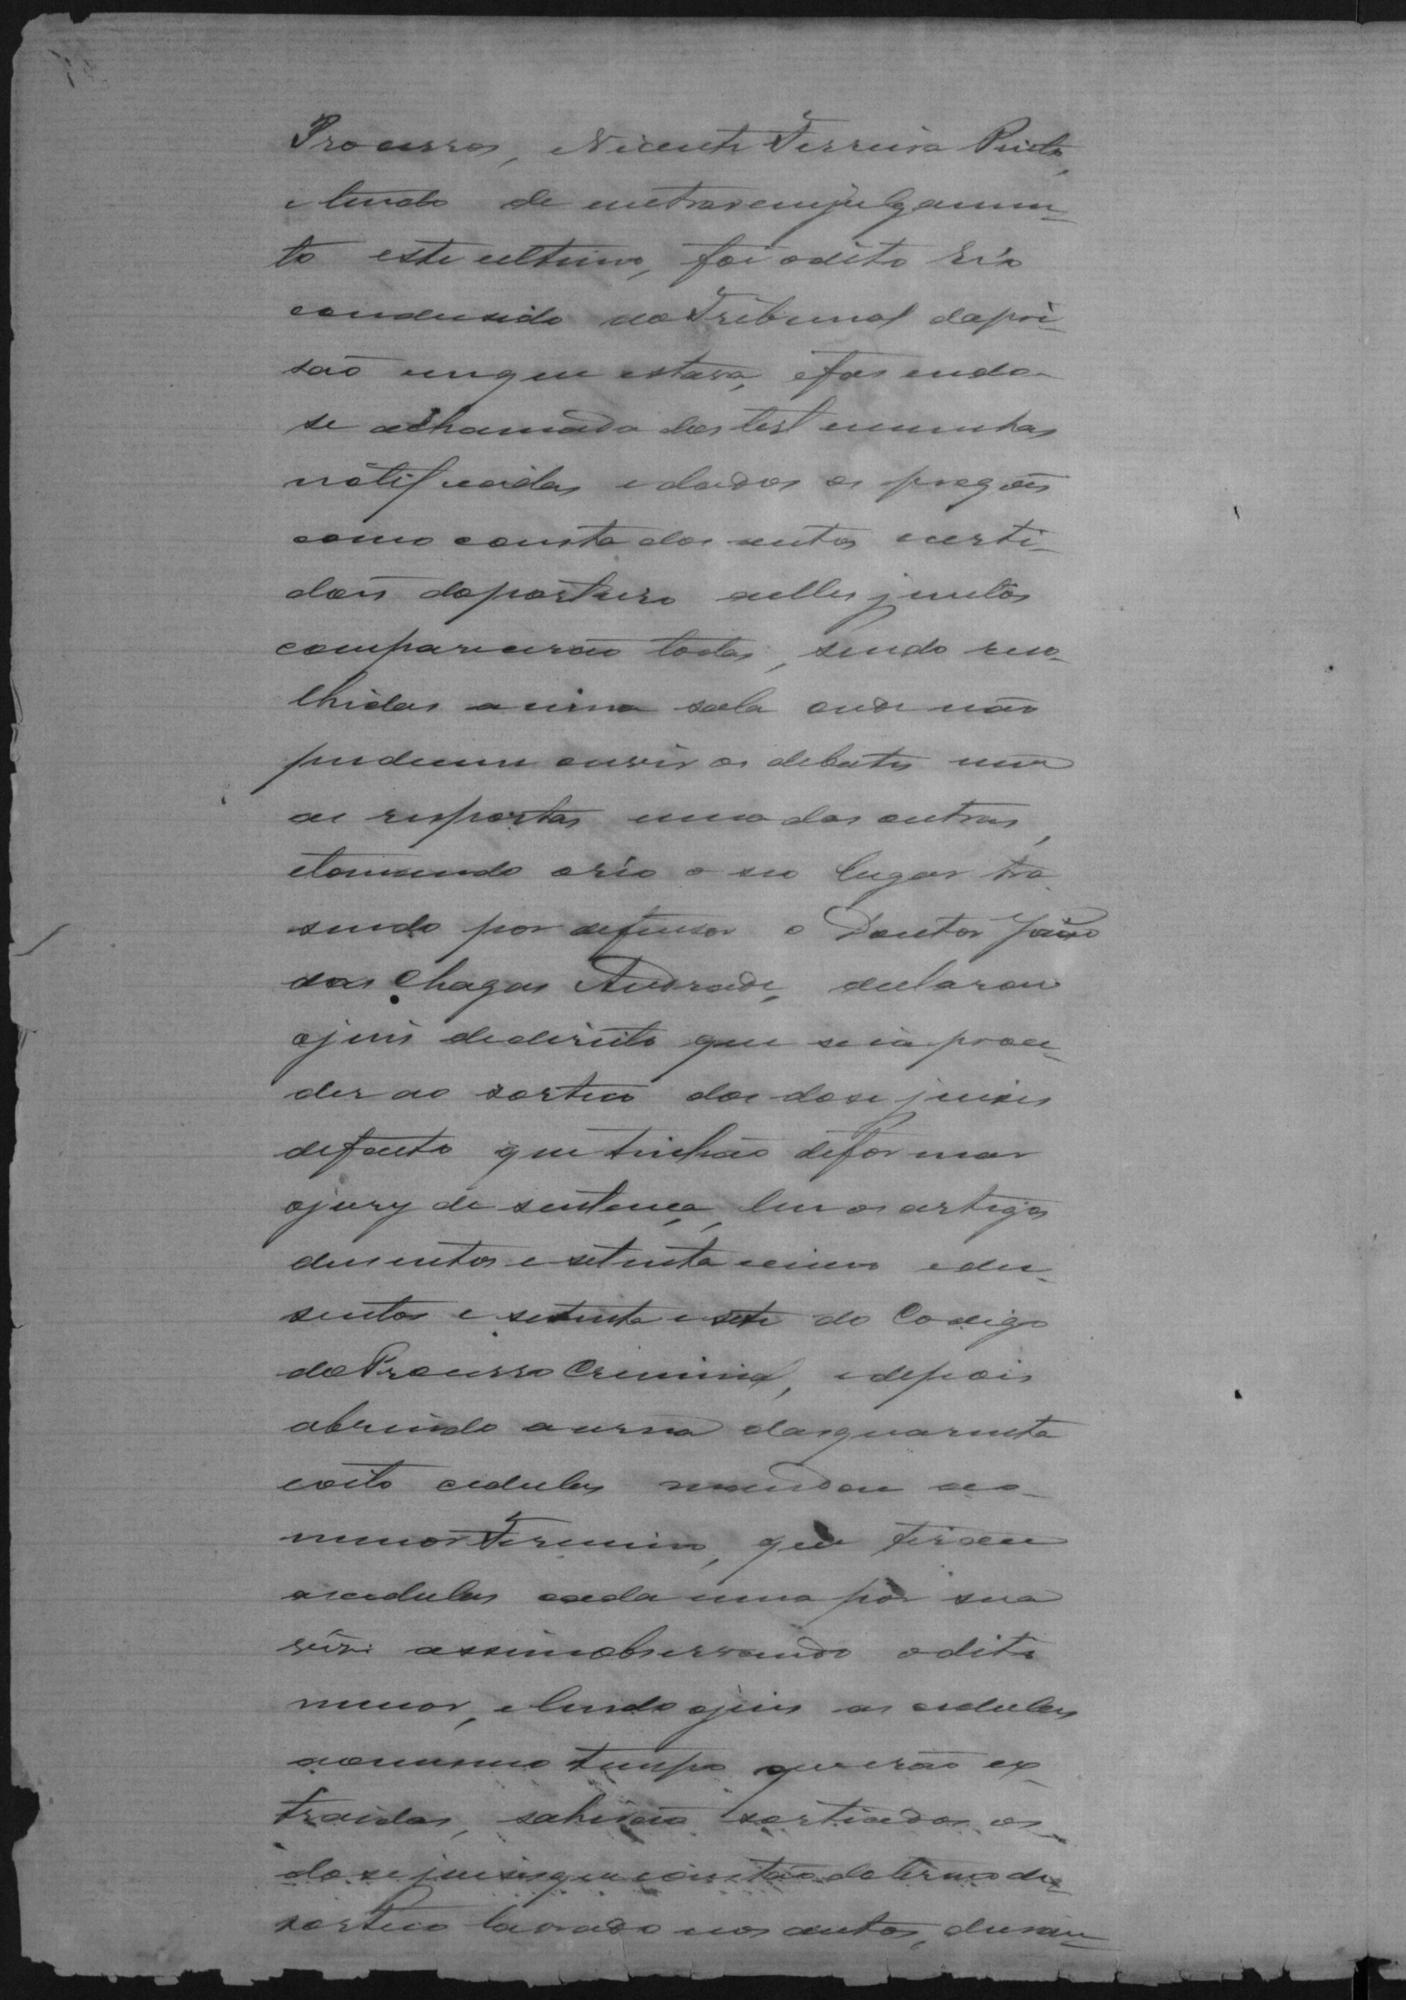 Processos, Vicente Ferreira Pinto,
e tendo de entrar em julgamen-
to este ultimo, foi o dito réo
condusido ao Tribunal da pri-
são em que estava, e fasendo-
se a chamada das testemunhas
notificadas e dados os pregões
como consta dos autos e certi-
dões do porteiro a elles juntos
comparecerão todas, sendo reco-
lhidas a uma sala onde não
podessem ouvir os debates nem
as respostas umas das outras,
e tomando o réo o seu lugar tra-
sendo por defensor o Doutor João
das Chagas Andrade, declarou
o juis de direito que se ia proce-
der ao sorteio dos dose juises
de facto que tinhão de formar
o jury de sentença, leu os artigos
dusentos e setenta e cinco e du-
sentos e setenta e sete do Codigo
do Processo Criminal, e depois
abrindo a urna das quarenta
e oito cedulas mandou ao
menor Firmino, que tirasse
as cedulas cada uma por sua
vez: assim observando o dito
menor, e lendo o juis as cedulas
ao mesmo tempo que erão ex-
traidas, sahirão sorteados os
dose juises que constão do termo de
sorteio lavrado nos autos, duran-